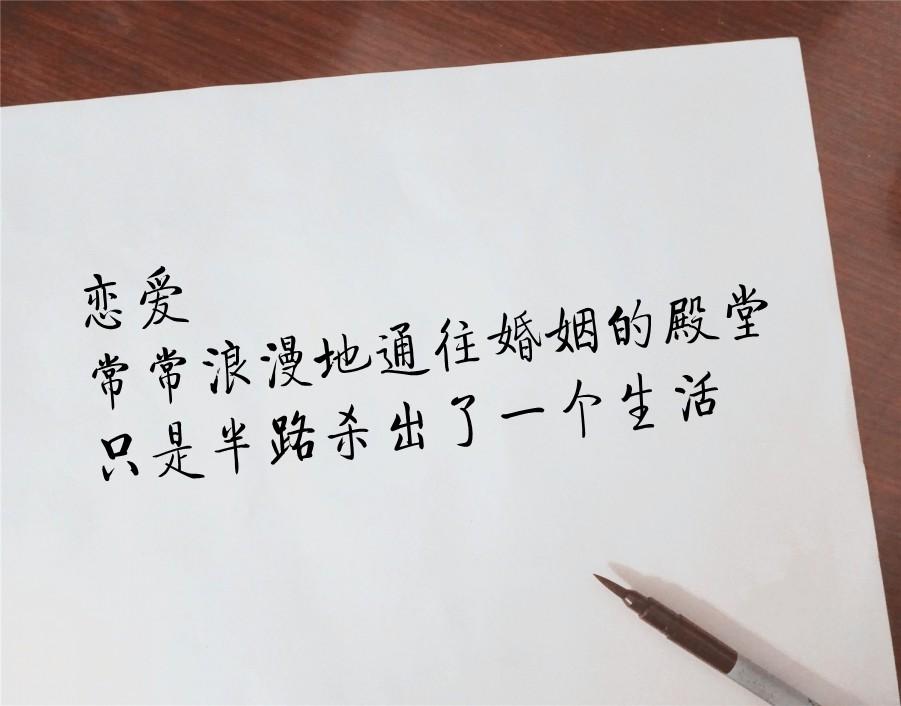 恋爱
常常浪漫地通往婚姻的殿堂
只是半路杀出了一个生活